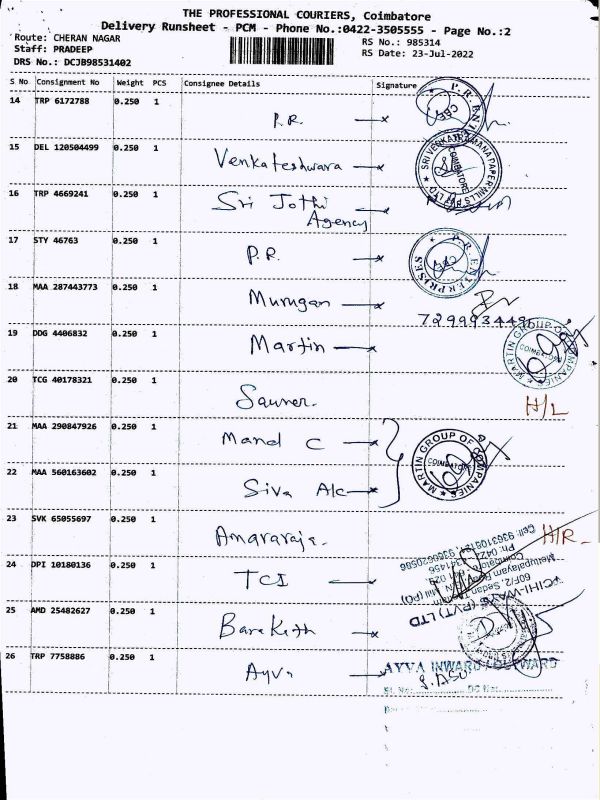 THE PROFESSIONAL COURIERS, Coimbatore
Delivery Runsheet - PCM - Phone No.:0422-3505555 - Page No.:2
Route: CHERAN NAGAR
RS No.: 985314
Staff: PRADEEP
RS Date: 23-Jul-2022
DRS No.: DCJB98531402
S No Consignment No Weight PCS Consignee Details Signature
14 TRP 6172788 0.250 1
P.R.
P.R. ENT
15 DEL 120504499 0.250 1
Venkateshwara
SRI VENKATARAMANA PAPER MILLS (P) LTD
COIMBATORE
16 TRP 4669241 0.250 1
Sri Jothi
Agency
17 STY 46763 0.250 1
P.R.
P.R. ENTERPRISES
CBE
18 MAA 287443773 0.250 1
Murugan
19 DDG 4406832 0.250 1
Martin
MARTIN GROUP OF COMPANIES
COIMBATORE
20 TCG 40178321 0.250 1
H/L
21 MAA 290847926 0.250 1
C
22 MAA 560163602 0.250 1
Siva A/c
MARTIN GROUP OF COMPANIES
COIMBATORE
23 SVK 65055697 0.250 1
Amararaja.
H/R
24 DPI 10180136 0.250 1
TCI
(PVT) LTD
25 AMD 25482627 0.250 1
Barakath
26 TRP 7758886 0.250 1
Ayva
AYVA INWARD / OUTWARD